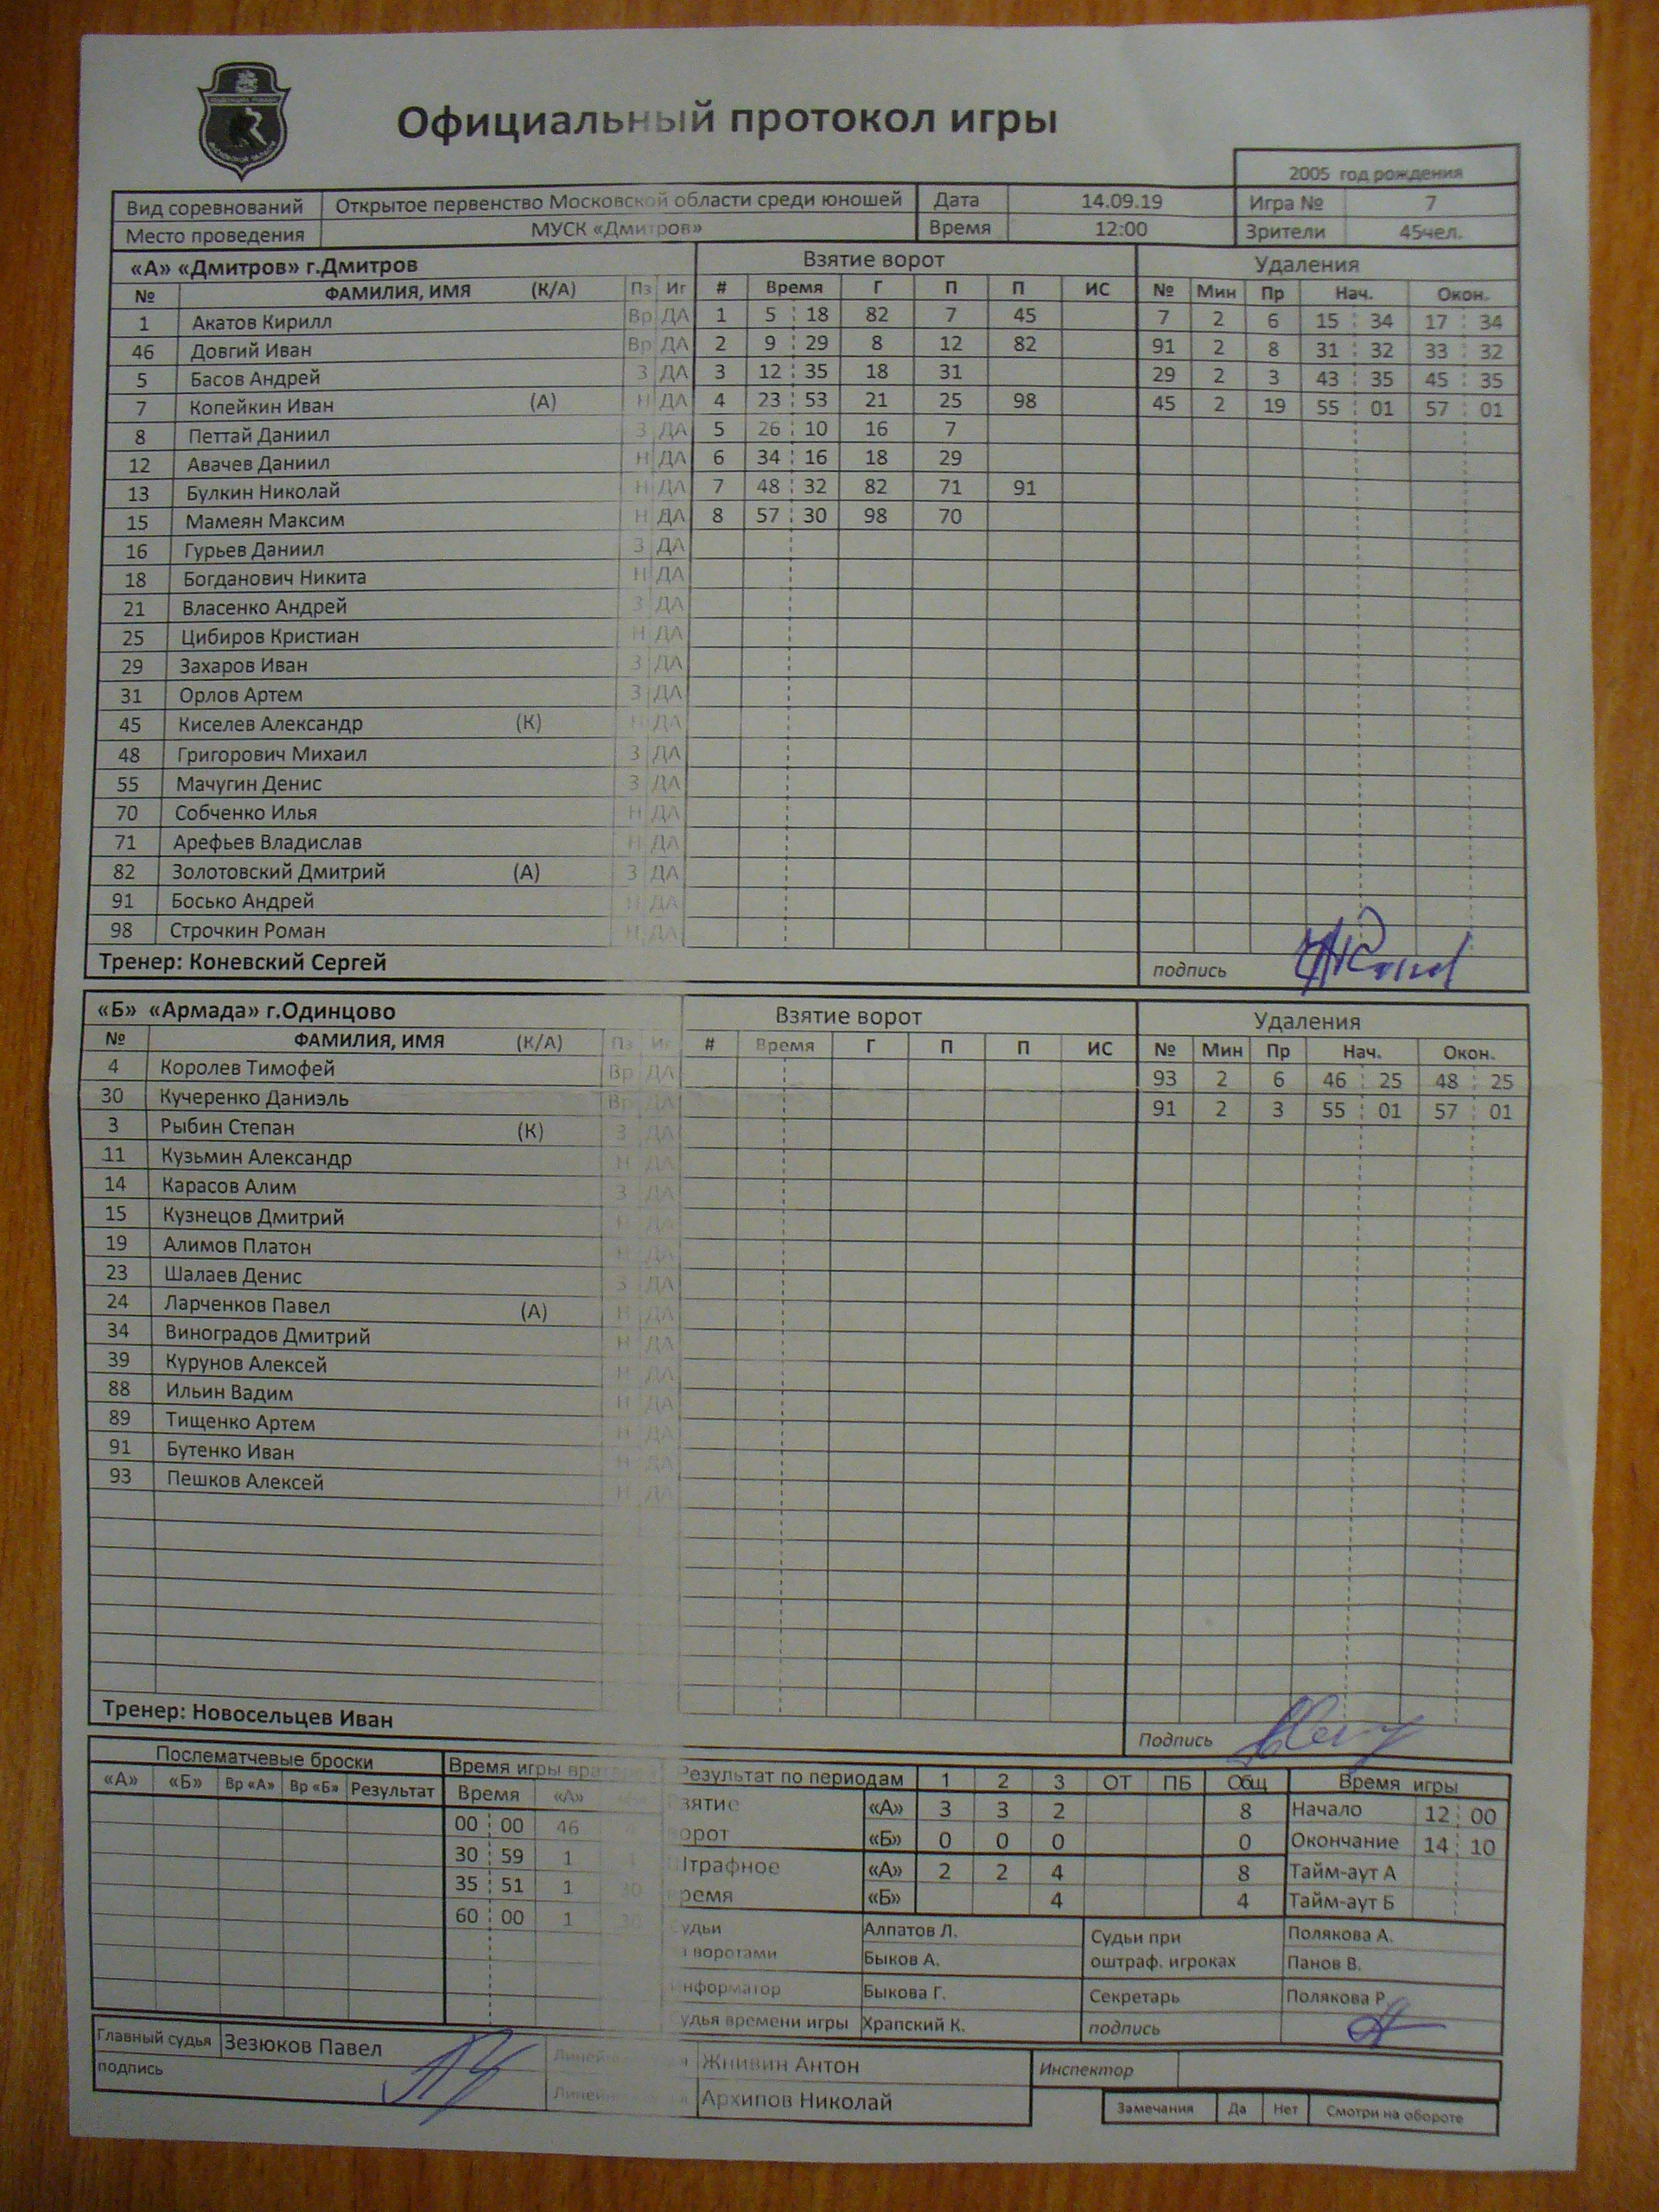 Официальный протокол игры
2005 год рождения
Вид соревнований Открытое первенство Московской области среди юношей Дата 14.09.19 Игра № 7
Место проведения МУСК «Дмитров» Время 12:00 Зрители 45чел.
«А» «Дмитров» г.Дмитров Взятие ворот Удаления
№ ФАМИЛИЯ, ИМЯ (К/А) Пз Иг # Время Г П П ИС № Мин Пр Нач. Окон.
1 Акатов Кирилл Вр ДА 1 5 18 82 7 45 7 2 6 15 34 17 34
46 Довгий Иван Вр ДА 2 9 29 8 12 82 91 2 8 31 32 33 32
5 Басов Андрей З ДА 3 12 35 18 31 29 2 3 43 35 45 35
7 Копейкин Иван (А) Н ДА 4 23 53 21 25 98 45 2 19 55 01 57 01
8 Петтай Даниил З ДА 5 26 10 16 7
12 Авачев Даниил Н ДА 6 34 16 18 29
13 Булкин Николай Н ДА 7 48 32 82 71 91
15 Мамеян Максим Н ДА 8 57 30 98 70
16 Гурьев Даниил З ДА
18 Богданович Никита Н ДА
21 Власенко Андрей З ДА
25 Цибиров Кристиан Н ДА
29 Захаров Иван З ДА
31 Орлов Артем З ДА
45 Киселев Александр (К) Н ДА
48 Григорович Михаил З ДА
55 Мачугин Денис З ДА
70 Собченко Илья Н ДА
71 Арефьев Владислав Н ДА
82 Золотовский Дмитрий (А) З ДА
91 Босько Андрей Н ДА
98 Строчкин Роман Н ДА
Тренер: Коневский Сергей подпись
«Б» «Армада» г.Одинцово Взятие ворот Удаления
№ ФАМИЛИЯ, ИМЯ (К/А) Пз Иг # Время Г П П ИС № Мин Пр Нач. Окон.
4 Королев Тимофей Вр ДА 93 2 6 46 25 48 25
30 Кучеренко Даниэль Вр ДА 91 2 3 55 01 57 01
3 Рыбин Степан (К) З ДА
11 Кузьмин Александр Н ДА
14 Карасов Алим З ДА
15 Кузнецов Дмитрий Н ДА
19 Алимов Платон Н ДА
23 Шалаев Денис З ДА
24 Ларченков Павел (А) Н ДА
34 Виноградов Дмитрий Н ДА
39 Курунов Алексей Н ДА
88 Ильин Вадим Н ДА
89 Тищенко Артем Н ДА
91 Бутенко Иван Н ДА
93 Пешков Алексей Н ДА
Тренер: Новосельцев Иван Подпись
Послематчевые броски Время игры вратарей Результат по периодам 1 2 3 ОТ ПБ Общ Время игры
«А» «Б» Вр «А» Вр «Б» Результат Время «А» взятие «А» 3 3 2 8 Начало 12 00
00 00 46 ворот «Б» 0 0 0 0 Окончание 14 10
30 59 1 Штрафное «А» 2 2 4 8 Тайм-аут А
35 51 1 30 время «Б» 4 4 Тайм-аут Б
60 00 1 30 Судьи Алпатов Л. Судьи при Полякова А.
воротами Быков А. оштраф. игроках Панов В.
Информатор Быкова Г. Секретарь Полякова Р.
Судья времени игры Храпский К. подпись
Главный судья Зезюков Павел Жнивин Антон Инспектор
подпись Архипов Николай Замечания Да Нет Смотри на обороте